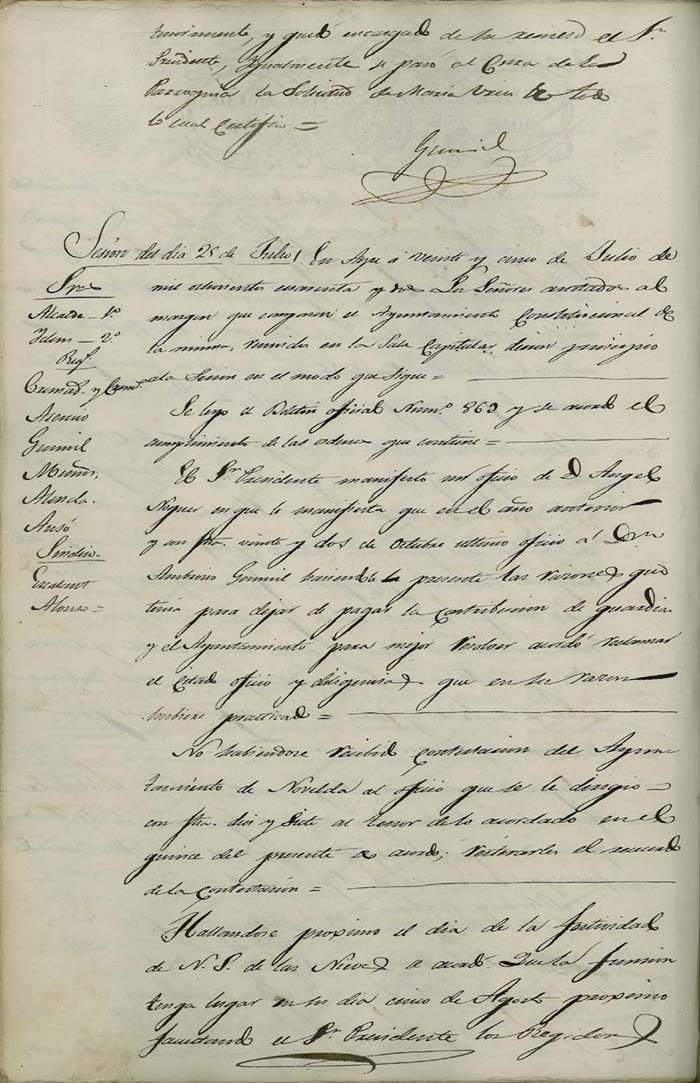 y quedó encargado de su remesa el Sr.
Presidente, Igualmente se pasó al Cura de la
Parroquia la Solicitud de Maria de todo
lo cual Certifico =
Gumiel
Sesion del dia 25 de Julio / En Aspe á veinte y cinco de Julio de
mil ochocientos cuarenta y dos Los Señores anotados al
margen que componen el Ayuntamiento Constitucional de
la misma, reunidos en la Sala Capitular dieron principio
a la Sesion en el modo que sigue =
Se leyo el Boletin official Num.º 869 y se acordó el
cumplimiento de las ordenes que contiene =
El Sr. Presidente manifesto un oficio de D. Angel
en que le manifiesta que en el año anterior
y con fha. veinte y dos de Octubre ultimo oficio á Dn.
Ambrosio Gumiel haciendole presente las razones que
tenia para dejar de pagar la Contribucion de guardia
y el Ayuntamiento para mejor resolver acordó reclamar
el citado oficio y diligencias que en su razon
hubiese practicado =
No habiendose recibido Contestacion del Ayun
tamiento de Novelda al oficio que se le dirigio
con fha. diez y siete al tenor de lo acordado en el
quince del presente se acordó, reiterarles el recuerdo
de la Contestacion =
Hallandose proximo el dia de la festividad
de N. S. de las Nieves se acordó Que la funcion
tenga lugar en su dia cinco de Agosto proximo
el Sr. Presidente los Regidores
Sres
Alcalde 1º
Idem 2º
Regs.
Cremad. y Crem.
Asencio
Gumiel
Muñoz
Alenda
Ansó
Sindico
Alonso =